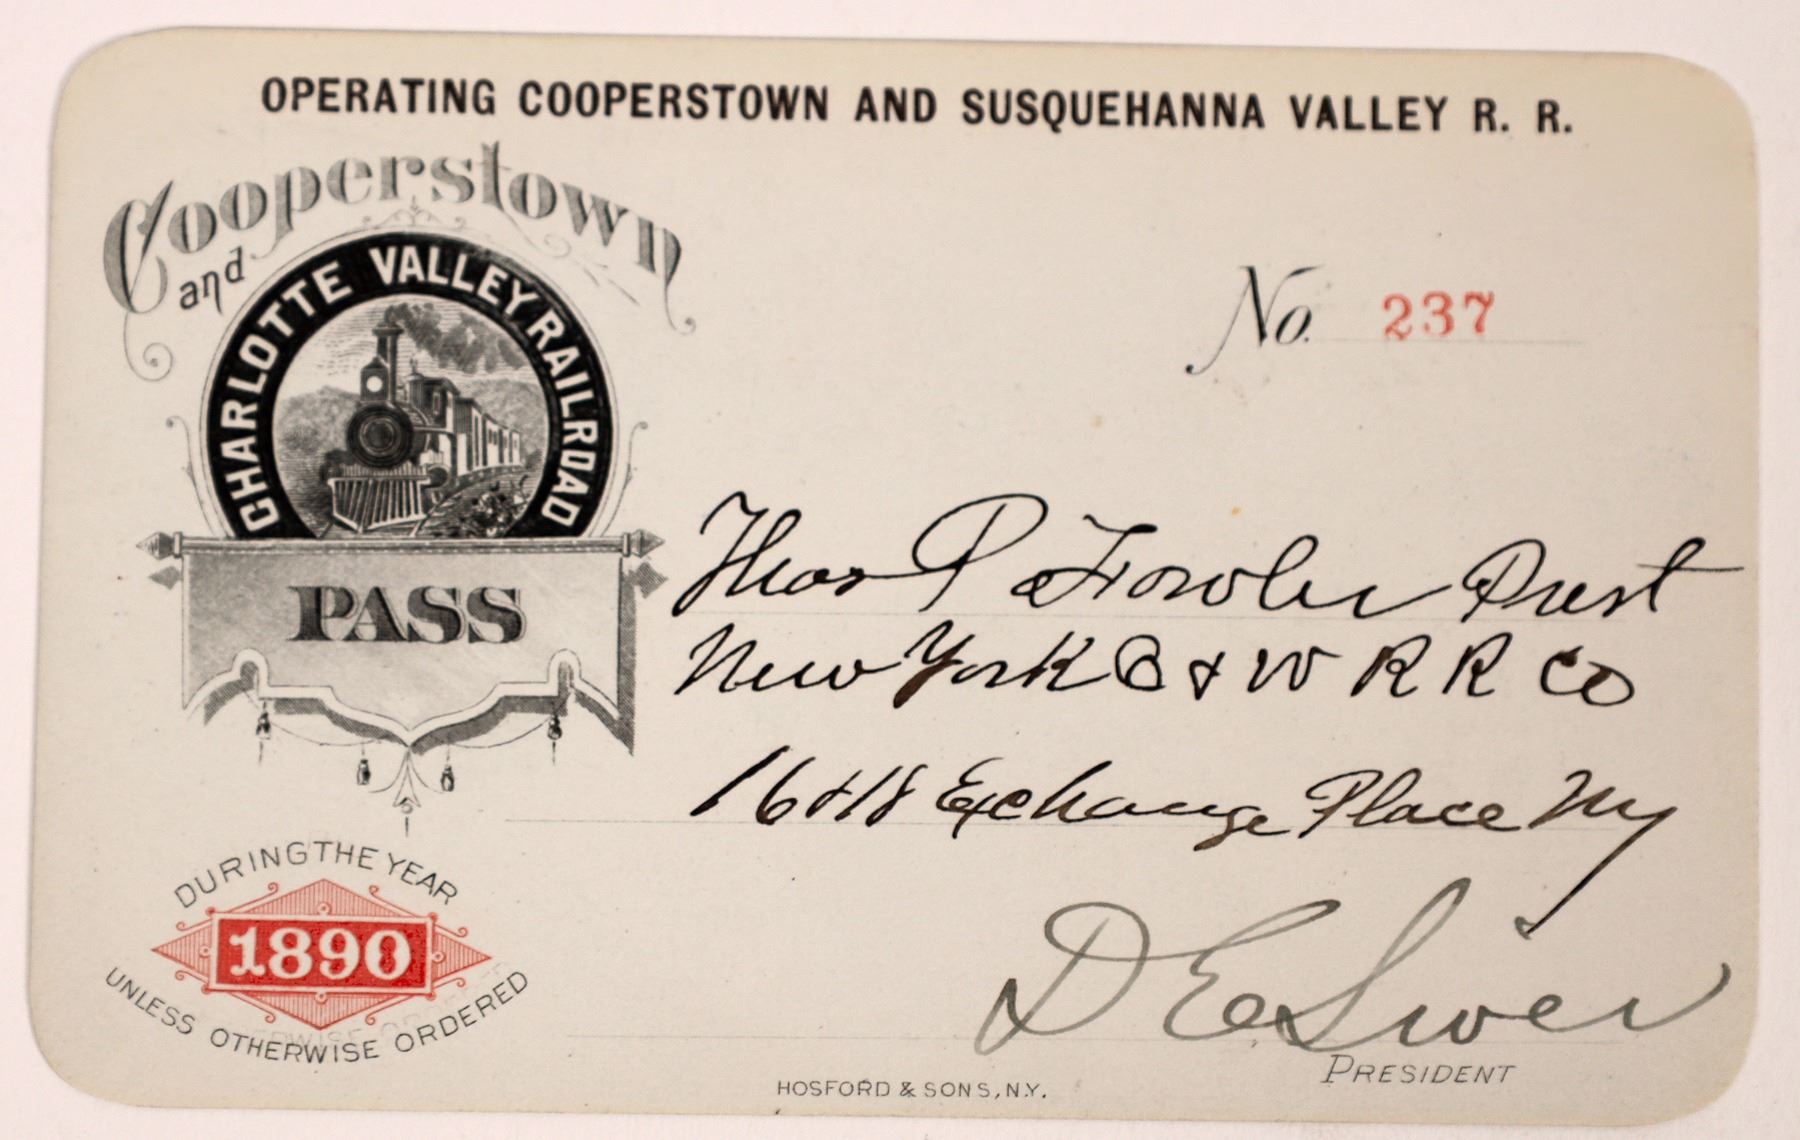 OPERATING COOPERSTOWN AND SUSQUEHANNA VALLEY R. R.
Cooperstown
and
CHARLOTTE VALLEY RAILROAD
No. 237
PASS
Thos P Fowler Prest
New York O & W R R Co
16 & 18 Exchange Place NY
DURING THE YEAR
1890
UNLESS OTHERWISE ORDERED
D E Siver
PRESIDENT
HOSFORD & SONS, N.Y.